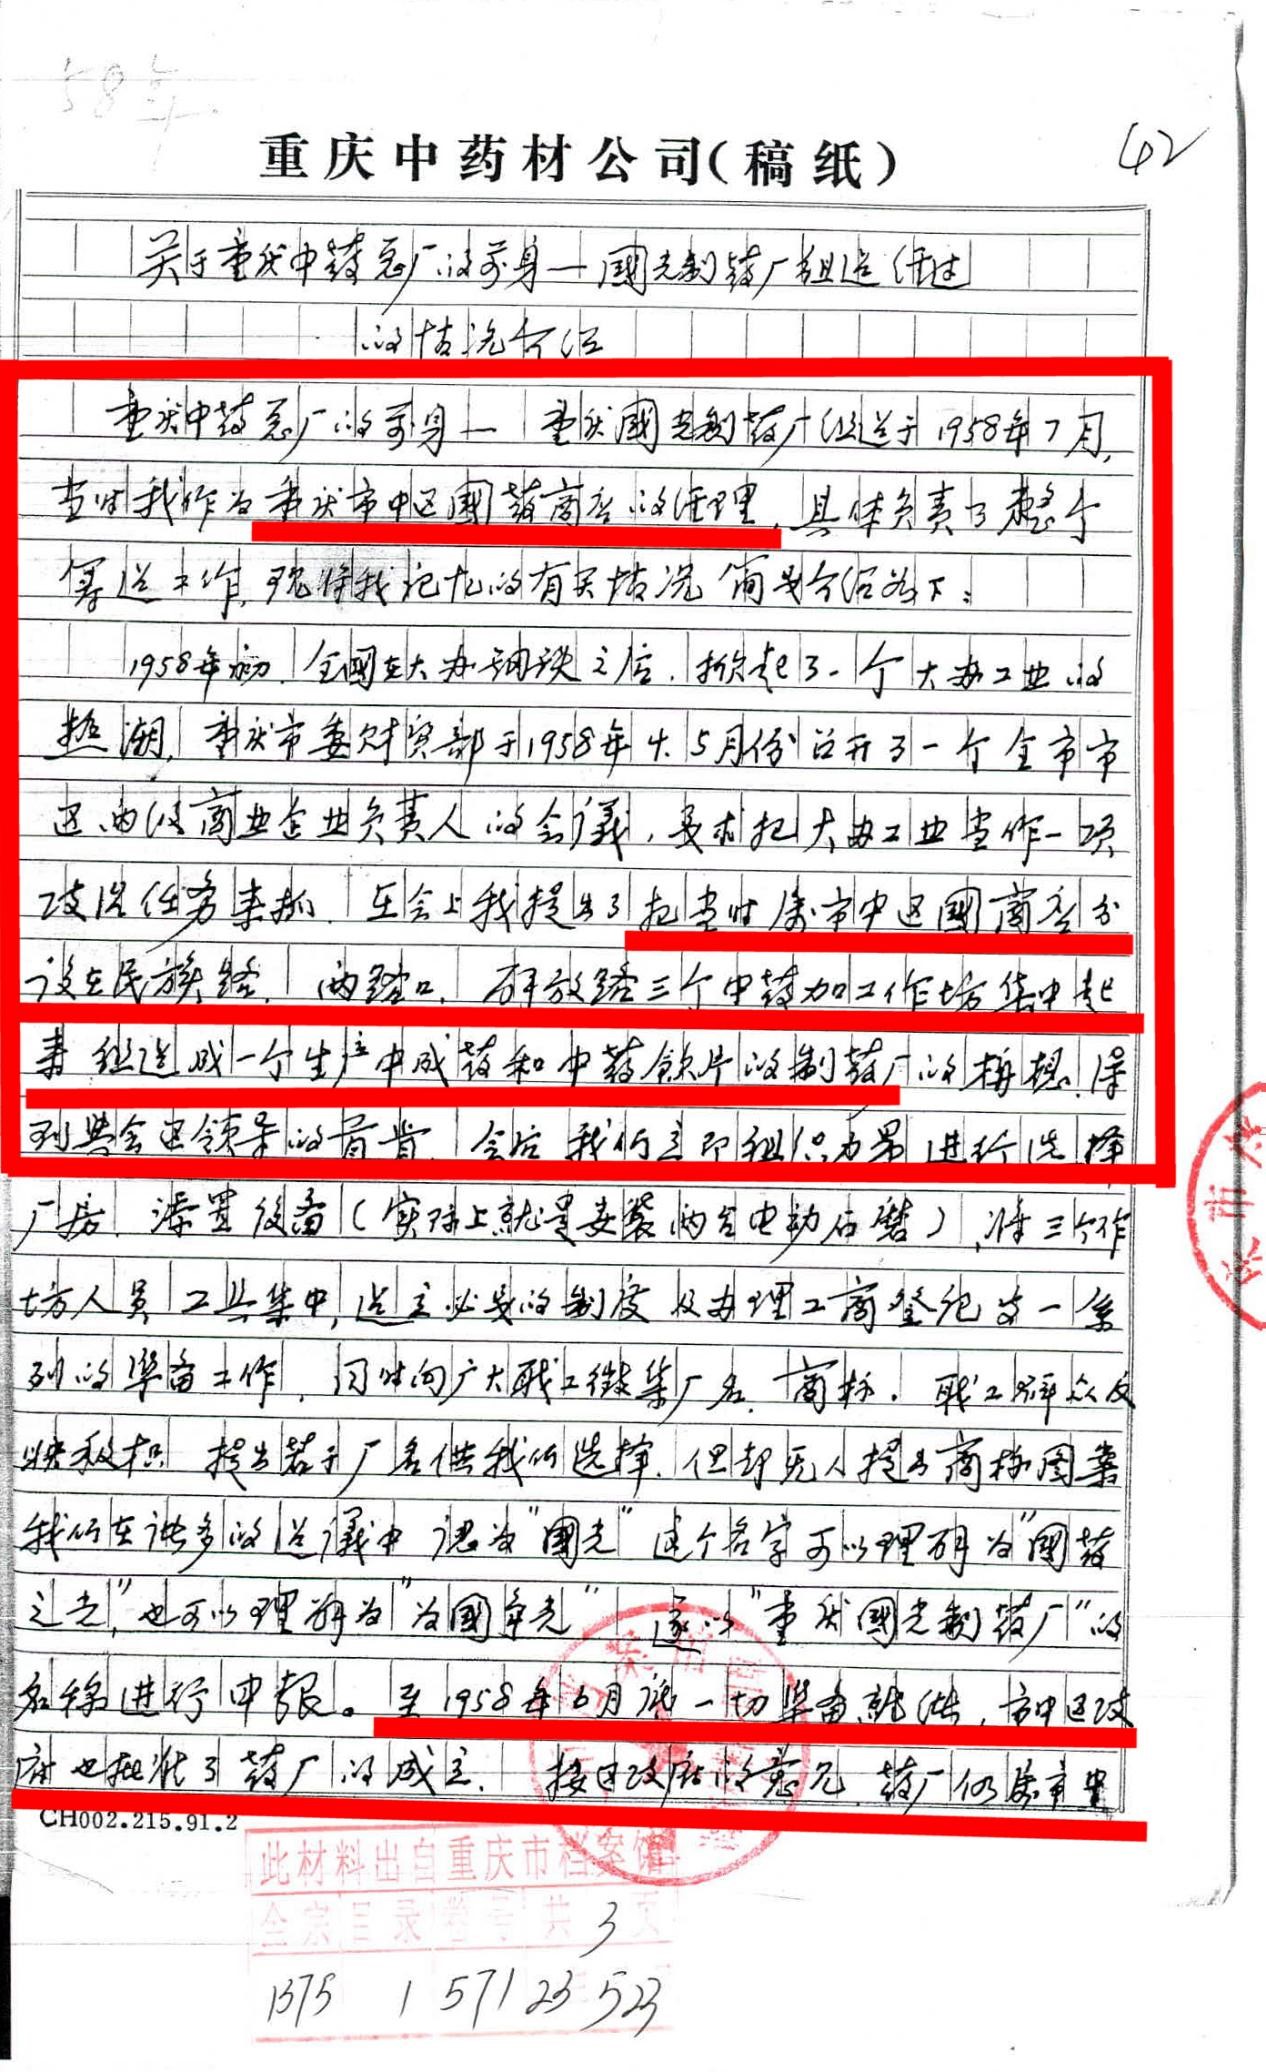 58年
42
重庆中药材公司(稿纸)
关于重庆中药总厂的前身—國光制药厂组造经过
的情况介绍
重庆中药总厂的前身— 重庆國光制药厂组造于1958年7月,
当时我作为重庆市中区國药商店的经理,具体负责了整个
筹造工作,现将我记忆的有关情况简单介绍如下:
1958年初,全國在大办钢铁之后,掀起了一个大办工业的
热潮,重庆市委财贸部于1958年4.5月份召开了一个全市市
区两级商业企业负责人的会議,要求把大办工业当作一项
政治任务来抓.在会上我提出了把当时属市中区國商店分
设在民族路.两路口.解放路三个中药加工作坊集中起
来组造成一个生产中成药和中药飲片的制药厂的构想.得
到與会区领导的首肯.会后我们立即组织力量进行选择
厂房.添置设备(实际上就是安装两台电动石磨),将三个作
坊人员工具集中,造立必要的制度及办理工商登记等一系
列的準备工作,同时向广大职工徵集厂名.商标.职工群众反
映积极 提出若干厂名供我们选择.但却无人提出商标图案
我们在许多的造議中 认为"國光"这个名字可以理解为"國药
之光",也可以理解为"为國争光" 遂以"重庆國光制药厂"的
名称进行申报。至1958年6月底一切準备就绪,市中区政
府也批准了药厂的成立.按区政府的意见.药厂仍属市中
CH002.215.91.2
此材料出自重庆市档案馆
全宗 目录 卷号 共 3 页
1375 1 571 23 523